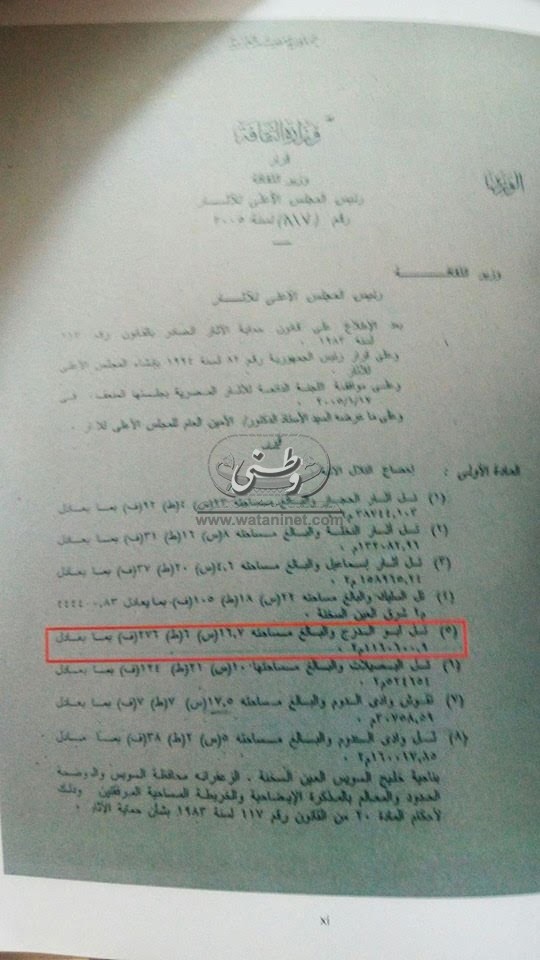 وزارة الثقافة
قرار
وزير الثقافة
الوزير
رئيس المجلس الأعلى للآثار
رقم (٨١٧) لسنة ٢٠٠٥
وزير الثقافة
رئيس المجلس الأعلى للآثار
بعد الإطلاع على قانون حماية الآثار الصادر بالقانون رقم
لسنة ١٩٨٣ .
وعلى قرار رئيس الجمهورية رقم ٨٢ لسنة ١٩٩٤ بإنشاء المجلس الأعلى
للآثار .
وعلى موافقة اللجنة الدائمة للآثار المصرية بجلستها المنعقدة فى
وعلى ما عرضه السيد الأستاذ الدكتور/ الأمين العام للمجلس الأعلى للآثار .
قرر
وطنى
www.wataninet.com
المادة الأولى : إخضاع التلال
(١) تل آثار الحجار والبالغ مساحته ٢٣(س) ٤(ط) ٩٢(ف) بما يعادل
٣٨٧٤٤,١٠٣م٢ .
(٢) تل آثار النخلة والبالغ مساحته ٨(س) ١٦(ط) ٣١(ف) بما يعادل
١٣٣٠٨٢,٩٦م٢ .
(٣) تل آثار إسماعيل والبالغ مساحته ٤,٦(س) ٢٠(ط) ٣٧(ف) بما يعادل
١٥٨٩٦٥,٢٤م٢ .
(٤) تل والبالغ مساحته ٢٢(س) ١٨(ط) ١٠٥(ف) بما يعادل ٤٤٤٤٠٠,٨٣
م٢ شرق العين السخنة .
(٥) تل أبو الدرج والبالغ مساحته ١٦,٧(س) ٦(ط) ٢٧٦(ف) بما يعادل
١١٦٠٦٠٠,٩م٢ .
(٦) تل البصيلات والبالغ مساحتها ٢٠(س) ٢١(ط) ١٢٤(ف) بما يعادل
٥٢٤٦٥٤م٢ .
(٧) نقوش وادى الدوم والبالغ مساحته ١٧,٥(س) ٧(ط) ٧(ف) بما يعادل
٣٠٧٥٨,٥٩م٢ .
(٨) تل وادى الدوم والبالغ مساحته ٥(س) ٢(ط) ٣٨(ف) بما يعادل
١٦٠٠١٧,٨٥م٢ .
بناحية خليج السويس العين السخنة . الزعفرانه محافظة السويس والموضحة
الحدود والمعالم بالمذكرة الإيضاحية والخريطة المساحية المرفقتين وذلك
لأحكام المادة ٢٠ من القانون رقم ١١٧ لسنة ١٩٨٣ بشأن حماية الآثار .
xi